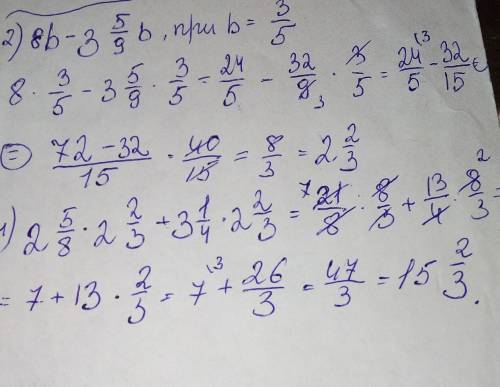 2) 8b - 3 5/9 b, при b = 3/5
8 · 3/5 - 3 5/9 · 3/5 = 24/5 - 32/9 3 · 3/5 = 24/5 \3 - 32/15 =
= 72-32/15 = 40/15 = 8/3 = 2 2/3
1) 2 5/8 · 2 2/3 + 3 1/4 · 2 2/3 = 7 21/8 · 8/3 + 13/4 · 8/3 2 =
= 7 + 13 · 2/3 = 7 \3 + 26/3 = 47/3 = 15 2/3.